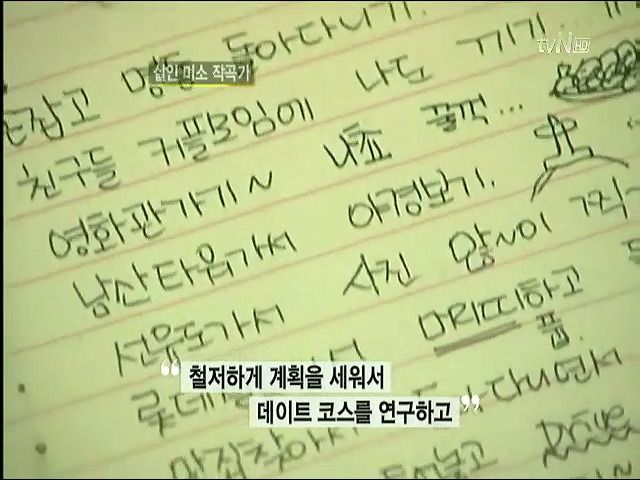 tvN HD
살인 미소 작곡가
손잡고 명동 돌아다니기.
친구들 커플모임에 나도 끼기.
영화관가기~ 나쵸 꿀꺽...
남산타워가서 야경보기.
선유도가서 사진 많~이 찍
머리띠하고
다니면서
맛집찾아
Drive
“철저하게 계획을 세워서
데이트 코스를 연구하고”